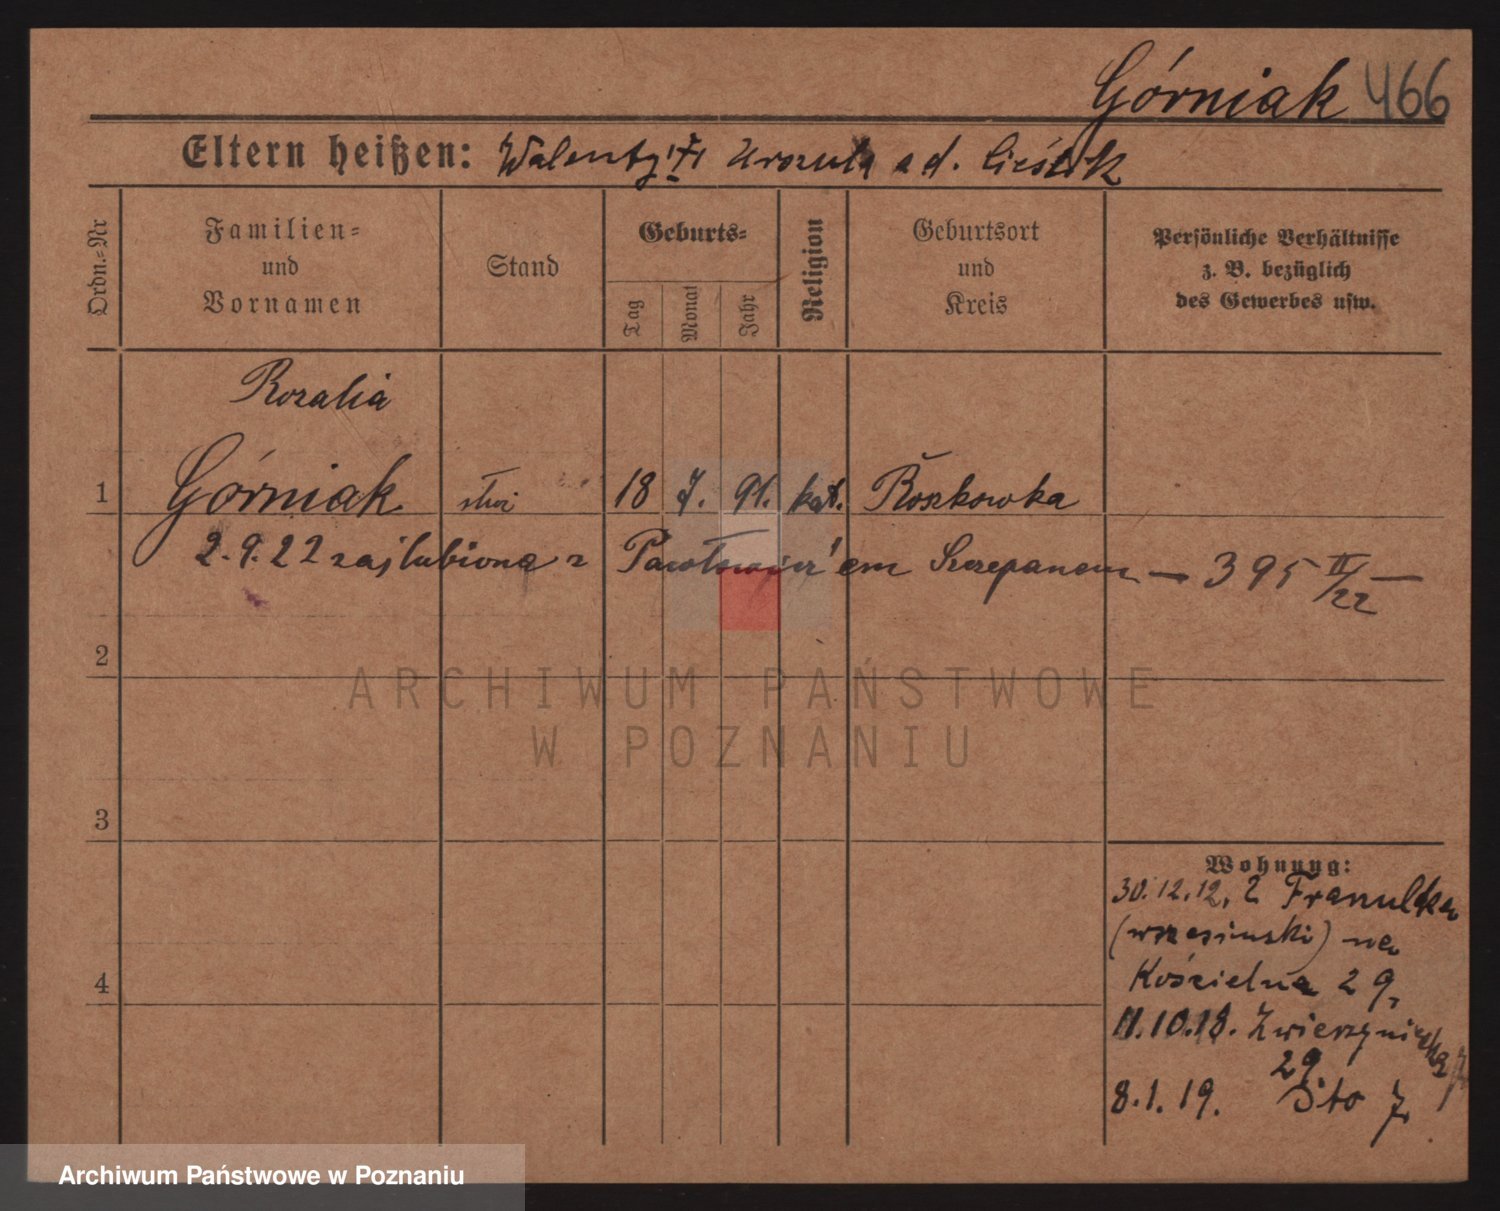 Górniak 466
Eltern heißen: Walenty i Urszula z d. Cieślik
Ordn.=Nr
Familien=
und
Vornamen
Stand
Geburts=
Tag
Monat
Jahr
Religion
Geburtsort
und
Kreis
Persönliche Verhältnisse
z. B. bezüglich
des Gewerbes usw.
Rozalia
1 Górniak 18 7. 91. kat. Roszkowka
2.9.22 zaślubiona z Szczepanem — 395 II/22 —
2
ARCHIWUM PAŃSTWOWE
W POZNANIU
3
4
Wohnung:
30.12.12. z
(wrzesinski) na
Kościelna 29,
11.10.18. Zwierzyniecka
29
8.1.19. Dto 7
Archiwum Państwowe w Poznaniu